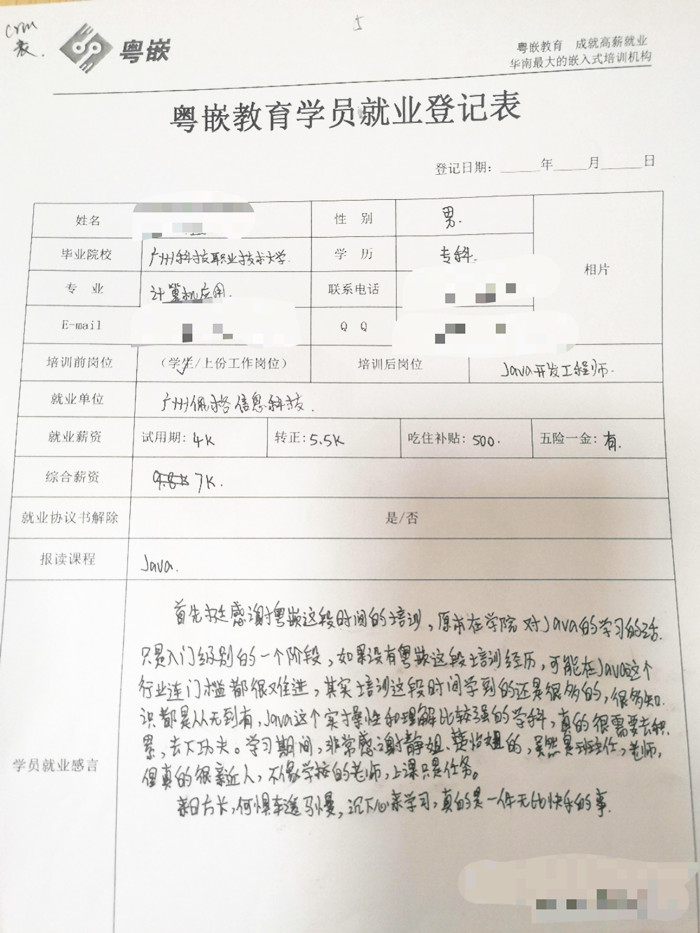 crm
表.
5
粤嵌
粤嵌教育 成就高薪就业
华南最大的嵌入式培训机构
粤嵌教育学员就业登记表
登记日期：_____年_____月_____日
姓名 性 别 男.
毕业院校 广州科技职业技术大学. 学 历 专科. 相片
专 业 计算机应用. 联系电话
E-mail Q Q
培训前岗位 （学生/上份工作岗位） 培训后岗位 Java开发工程师.
就业单位 广州佩格信息科技.
就业薪资 试用期：4K 转正：5.5K 吃住补贴：500. 五险一金：有.
综合薪资 7K.
就业协议书解除 是/否
报读课程 Java.
学员就业感言
首先我是感谢粤嵌这段时间的培训，原本在学院对Java的学习的话.
只是入门级别的一个阶段，如果没有粤嵌这段培训经历，可能在Java这个
行业连门槛都很难进，其实培训这段时间学到的还是很多的，很多知
识都是从无到有，Java这个实操性和理解比较强的学科，真的很需要去积
累，去下功夫。学习期间，非常感谢静姐、姐的，虽然是班主任，老师，
但真的很亲近人，不像学校的老师，上课只是任务。
来日方长，何惧车遥马慢，沉下心来学习，真的是一件无比快乐的事.